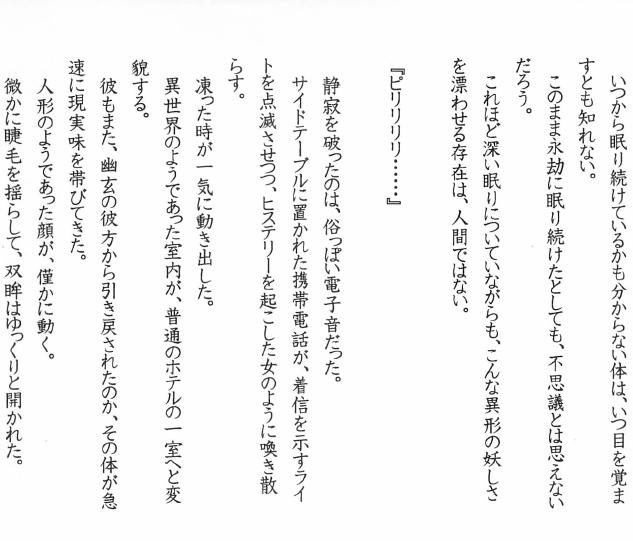 いつから眠り続けているかも分からない体は、いつ目を覚ま
すとも知れない。
　このまま永劫に眠り続けたとしても、不思議とは思えない
だろう。
　これほど深い眠りについていながらも、こんな異形の妖しさ
を漂わせる存在は、人間ではない。
『ピリリリリ……』
　静寂を破ったのは、俗っぽい電子音だった。
　サイドテーブルに置かれた携帯電話が、着信を示すライ
トを点滅させつつ、ヒステリーを起こした女のように喚き散
らす。
　凍った時が一気に動き出した。
　異世界のようであった室内が、普通のホテルの一室へと変
貌する。
　彼もまた、幽玄の彼方から引き戻されたのか、その体が急
速に現実味を帯びてきた。
　人形のようであった顔が、僅かに動く。
　微かに睫毛を揺らして、双眸はゆっくりと開かれた。